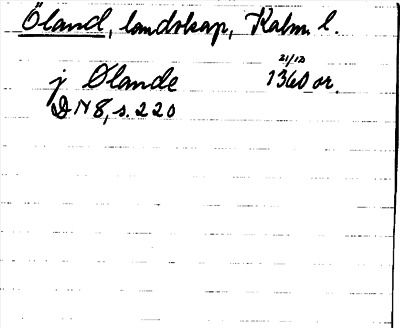 Öland, landskap, Kalm. l.
j Ølande 21/12 1360 or.
DN 8, s. 220